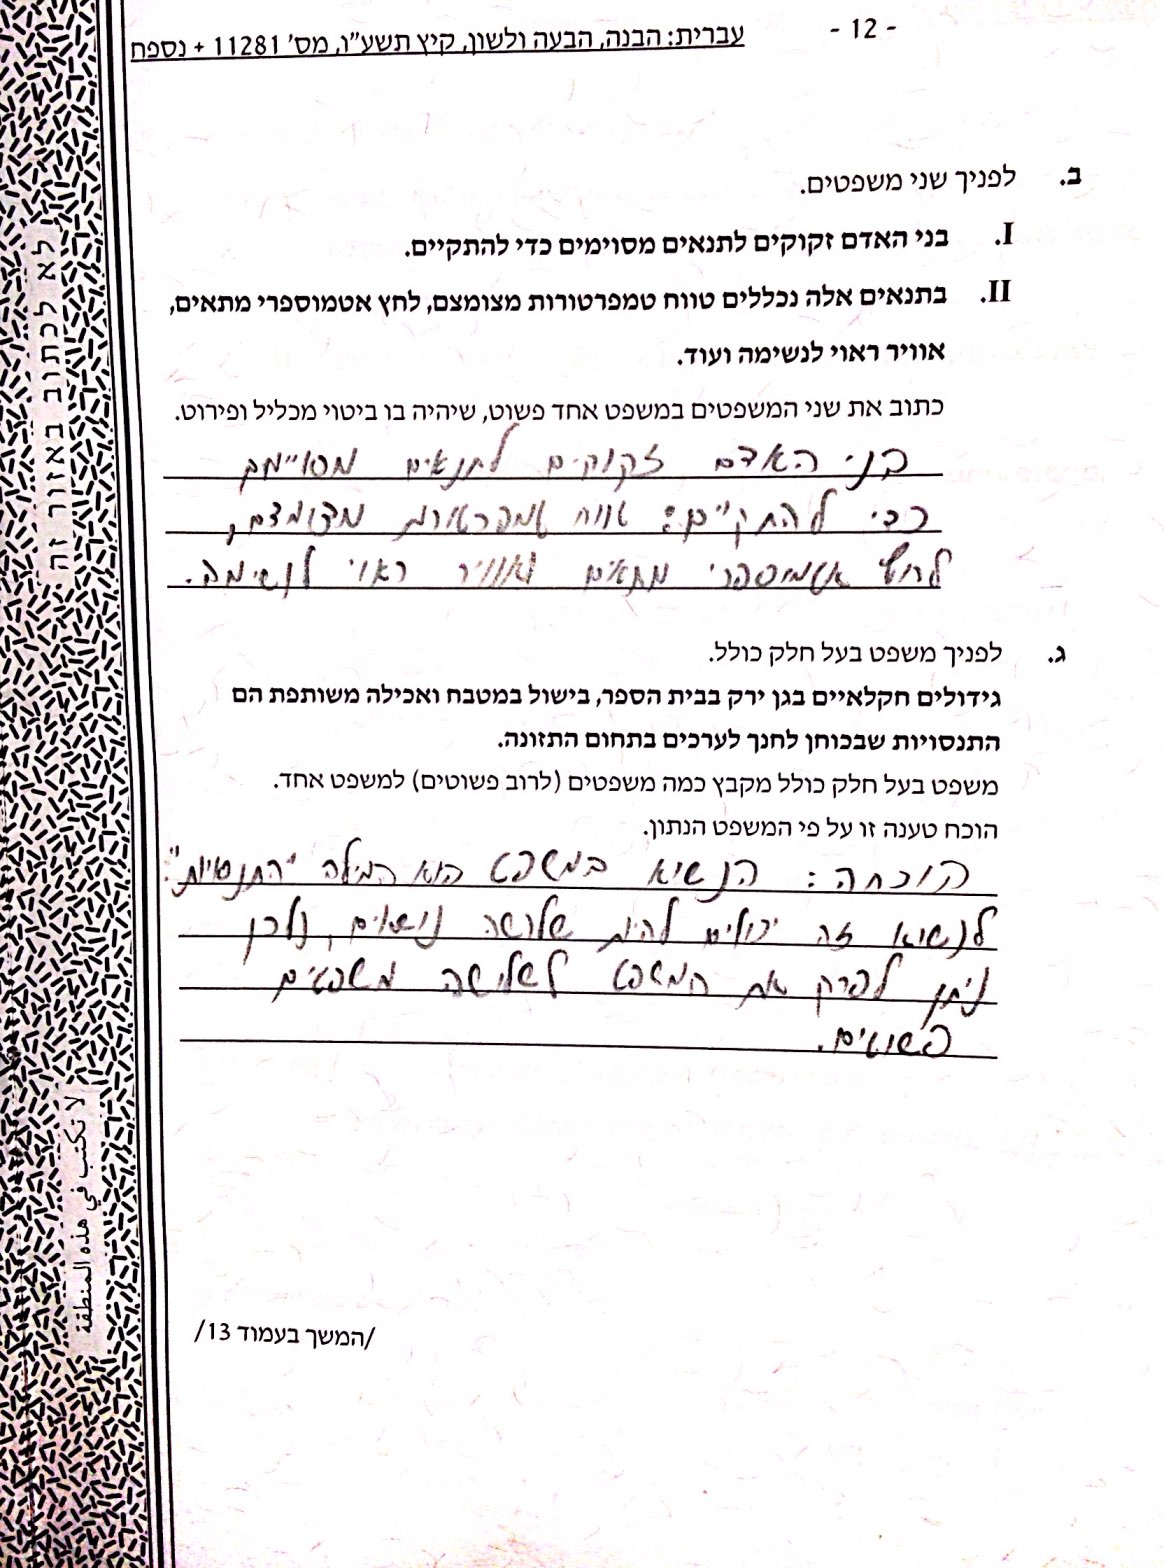 - 12 -
עברית: הבנה, הבעה ולשון, קיץ תשע"ו, מס' 11281 + נספח
ב. לפניך שני משפטים.
I. בני האדם זקוקים לתנאים מסוימים כדי להתקיים.
II. בתנאים אלה נכללים טווח טמפרטורות מצומצם, לחץ אטמוספרי מתאים,
אוויר ראוי לנשימה ועוד.
כתוב את שני המשפטים במשפט אחד פשוט, שיהיה בו ביטוי מכליל ופירוט.
בני האדם זקוקים לתנאים מסויימים
כדי להתקיים: טווח טמפרטורות מצומצם,
לחץ אטמוספרי מתאים ואוויר ראוי לנשימה.
ג. לפניך משפט בעל חלק כולל.
גידולים חקלאיים בגן ירק בבית הספר, בישול במטבח ואכילה משותפת הם
התנסויות שבכוחן לחנך לערכים בתחום התזונה.
משפט בעל חלק כולל מקבץ כמה משפטים (לרוב פשוטים) למשפט אחד.
הוכח טענה זו על פי המשפט הנתון.
הוכחה: הנשיא במשפט הוא המילה "התנסויות".
לנשיא זה יכולים להיות שלושה נושאים, ולכן
ניתן לפרק את המשפט לשלישה משפטים
פשוטים.
/המשך בעמוד 13/
לא לכתוב באזור זה
لا تكتب في هذه المنطقة